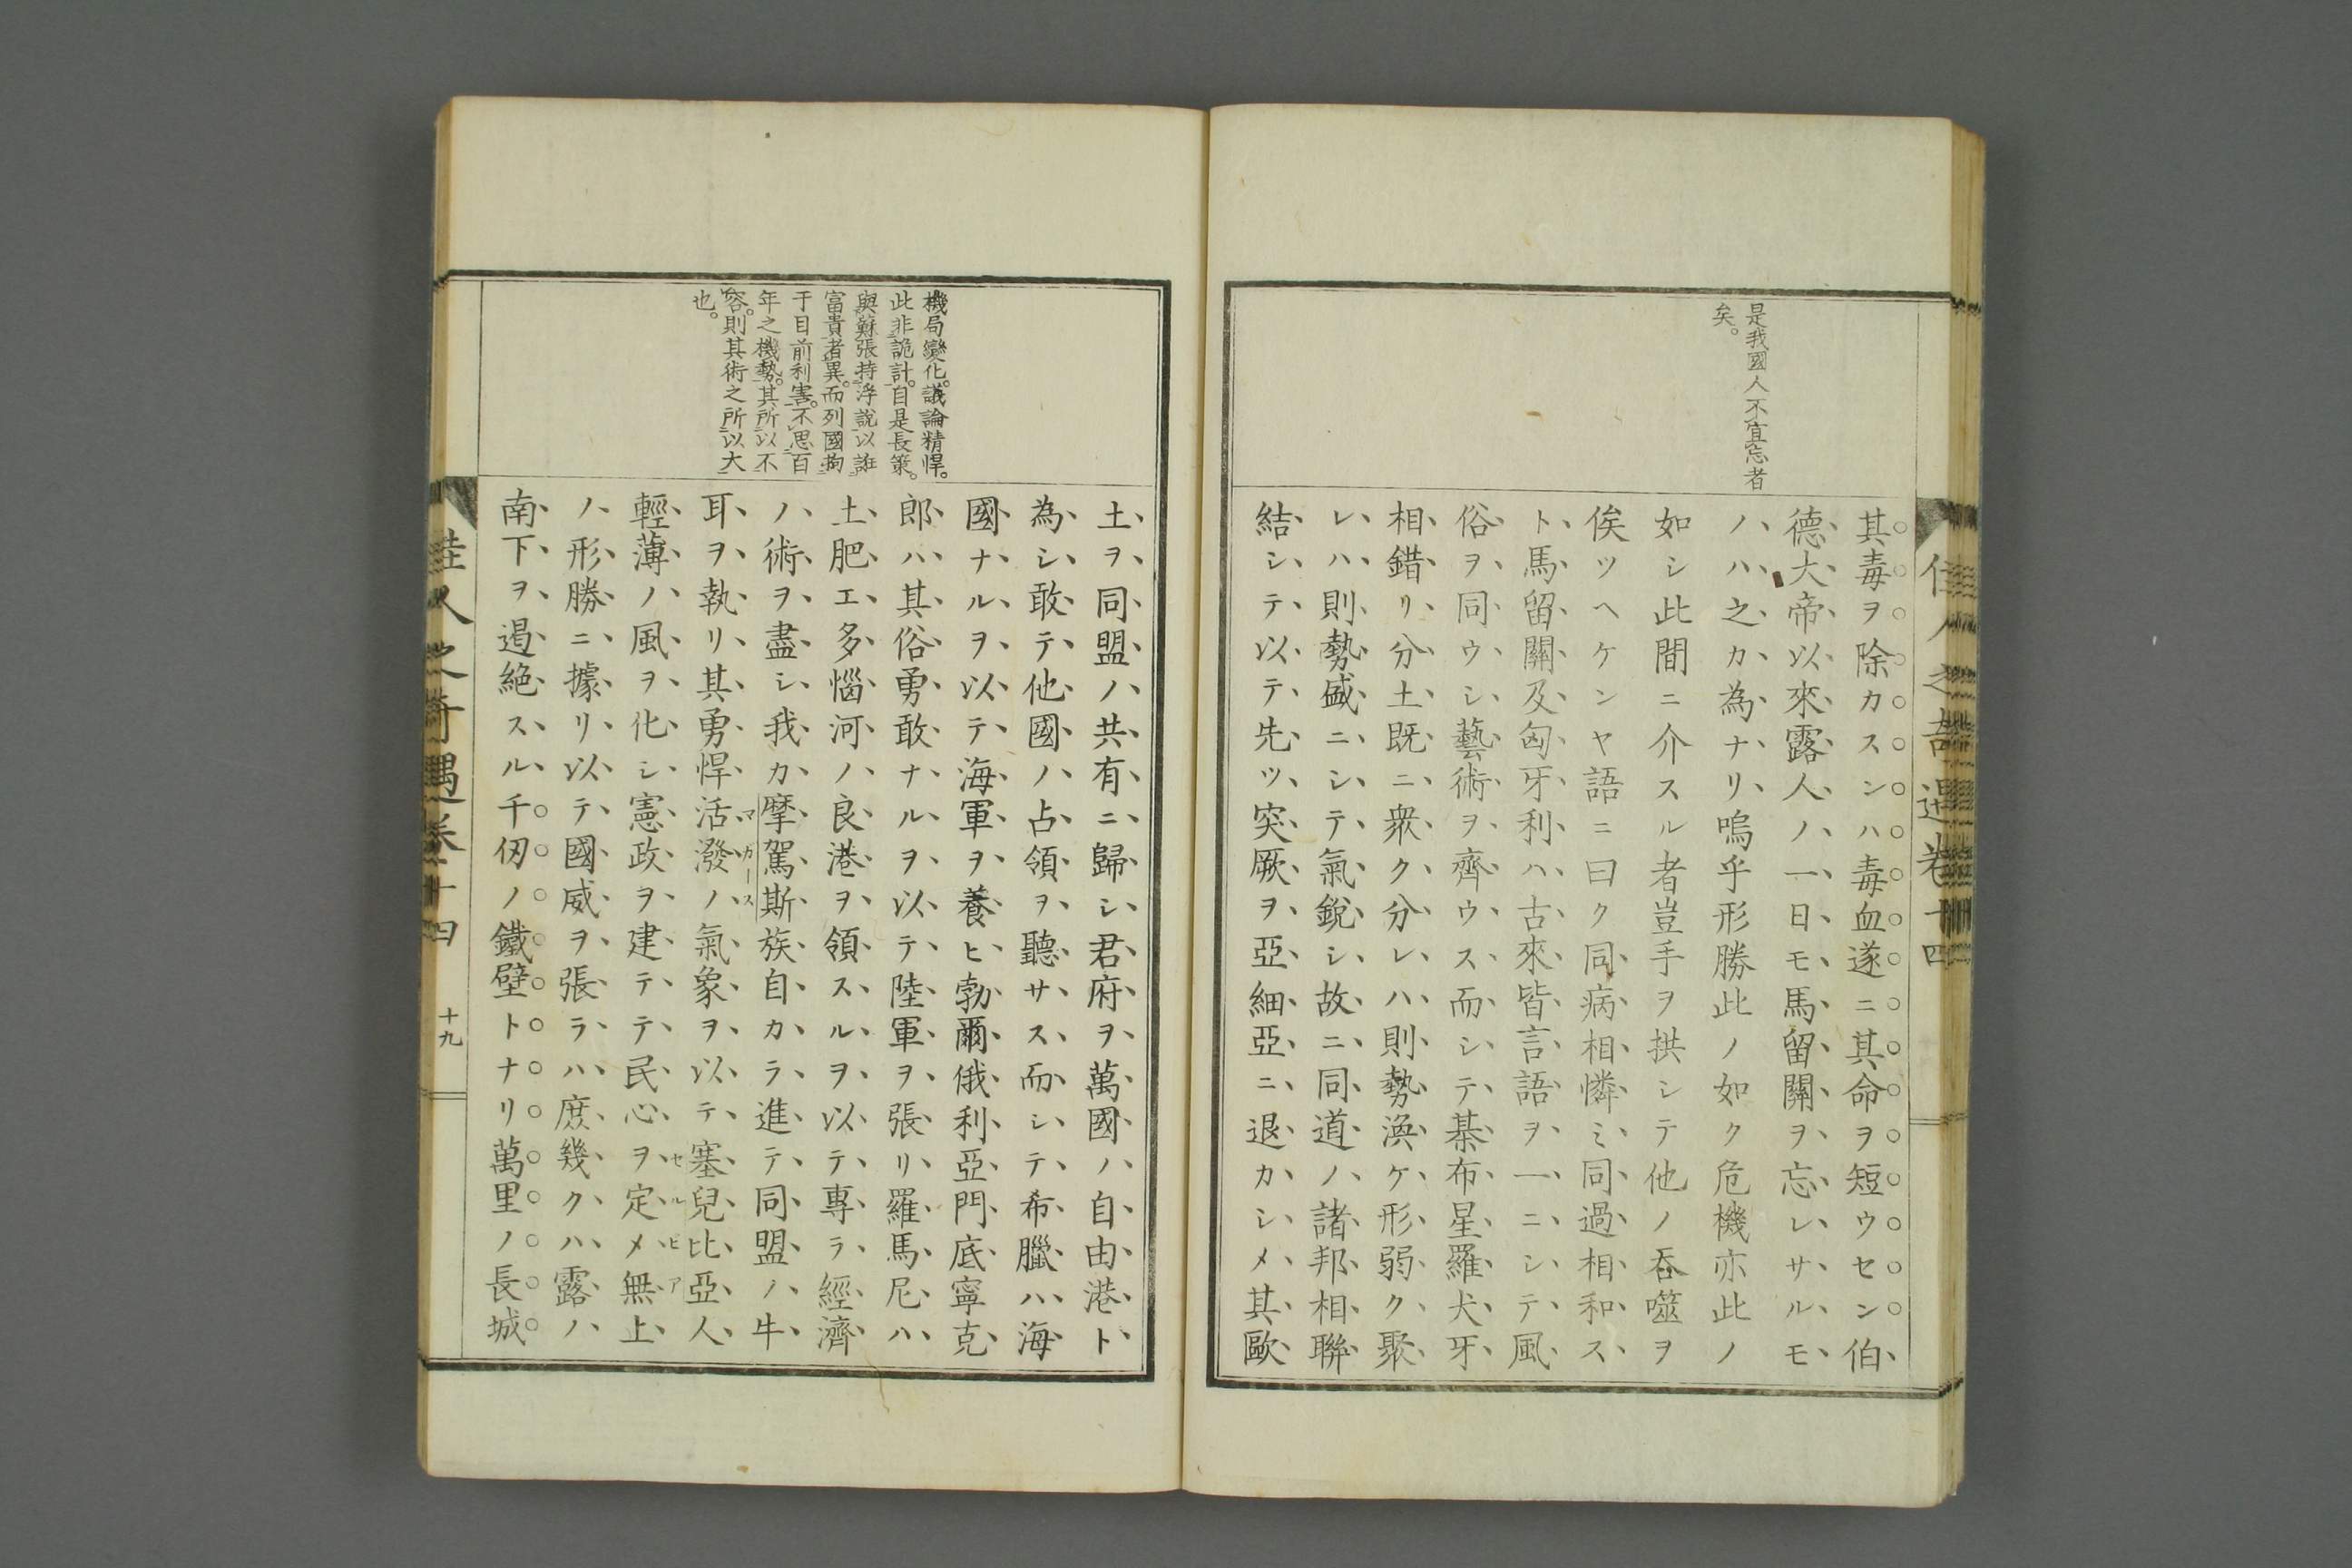 佳人之奇遇卷十四
是我國人不宜忘者
矣。
其毒ヲ除カスンハ毒血遂ニ其命ヲ短ウセン伯
德大帝以來露人ノ一日モ馬留關ヲ忘レサルモ
ノハ之カ為ナリ嗚乎形勝此ノ如ク危機亦此ノ
如シ此間ニ介スル者豈手ヲ拱シテ他ノ吞噬ヲ
俟ツヘケンヤ語ニ曰ク同病相憐ミ同過相和ス
ト馬留關及匈牙利ハ古來皆言語ヲ一ニシテ風
俗ヲ同ウシ藝術ヲ齊ウス而シテ棊布星羅犬牙
相錯リ分土既ニ衆ク分レハ則勢渙ケ形弱ク聚
レハ則勢盛ニシテ氣銳シ故ニ同道ノ諸邦相聯
結シテ以テ先ツ突厥ヲ亞細亞ニ退カシメ其歐
機局變化。議論精悍。
此非詭計。自是長策。
與蘇張持浮說以誑
富貴者異。而列國拘
于目前利害。不思百
年之機勢。其所以不
容。則其術之所以大
也。
土ヲ同盟ノ共有ニ歸シ君府ヲ萬國ノ自由港ト
為シ敢テ他國ノ占領ヲ聽サス而シテ希臘ハ海
國ナルヲ以テ海軍ヲ養ヒ勃爾俄利亞門底寧克
郎ハ其俗勇敢ナルヲ以テ陸軍ヲ張リ羅馬尼ハ
土肥エ多惱河ノ良港ヲ領スルヲ以テ專ラ經濟
ノ術ヲ盡シ我カ摩駕斯族自カラ進テ同盟ノ牛
マガース
耳ヲ執リ其勇悍活潑ノ氣象ヲ以テ塞兒比亞人
セルビア
輕薄ノ風ヲ化シ憲政ヲ建テテ民心ヲ定メ無上
ノ形勝ニ據リ以テ國威ヲ張ラハ庶幾クハ露ノ
南下ヲ遏絕スル千仞ノ鐵壁トナリ萬里ノ長城
佳人之奇遇卷十四
十九